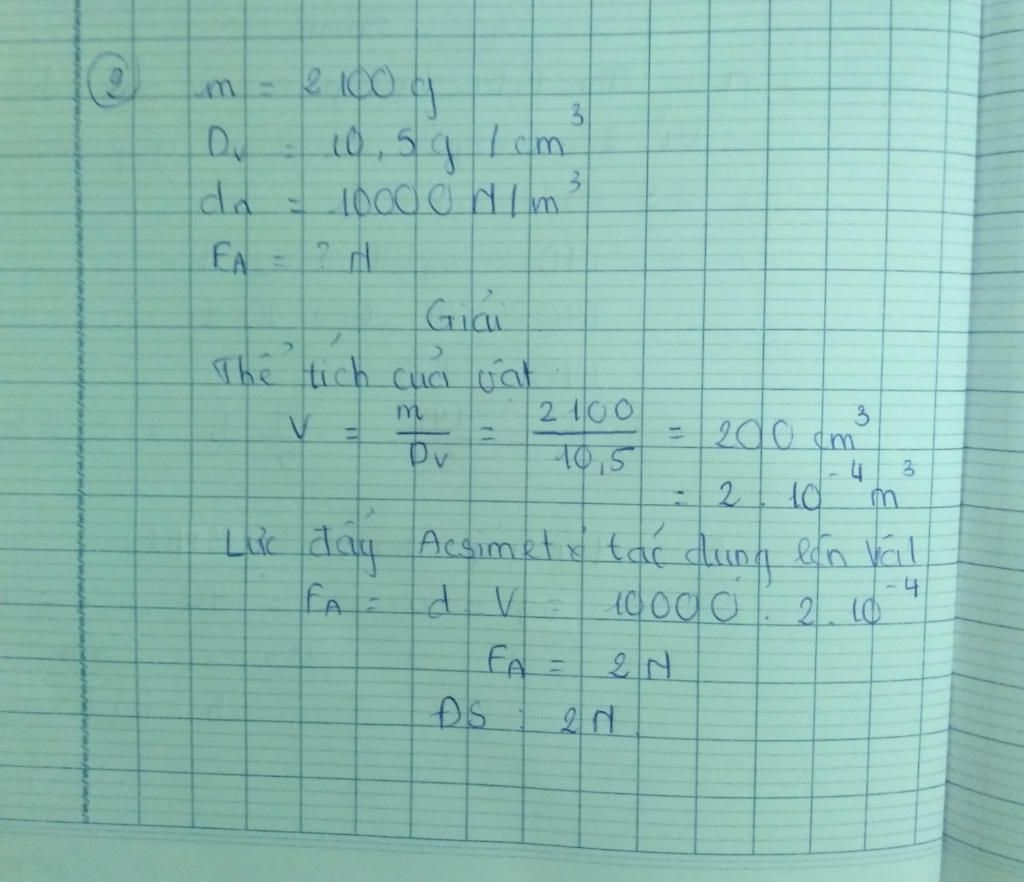 ② m = 2100 g
Dv = 10,5 g / cm³
dn = 10000 N/m³
FA = ? N
Giải
Thể tích của vật
V = m/Dv = 2100/10,5 = 200 cm³
= 2 . 10⁻⁴ m³
Lực đẩy Acsimet tác dụng lên vật
FA = d V = 10000 . 2 . 10⁻⁴
FA = 2 N
ĐS : 2 N